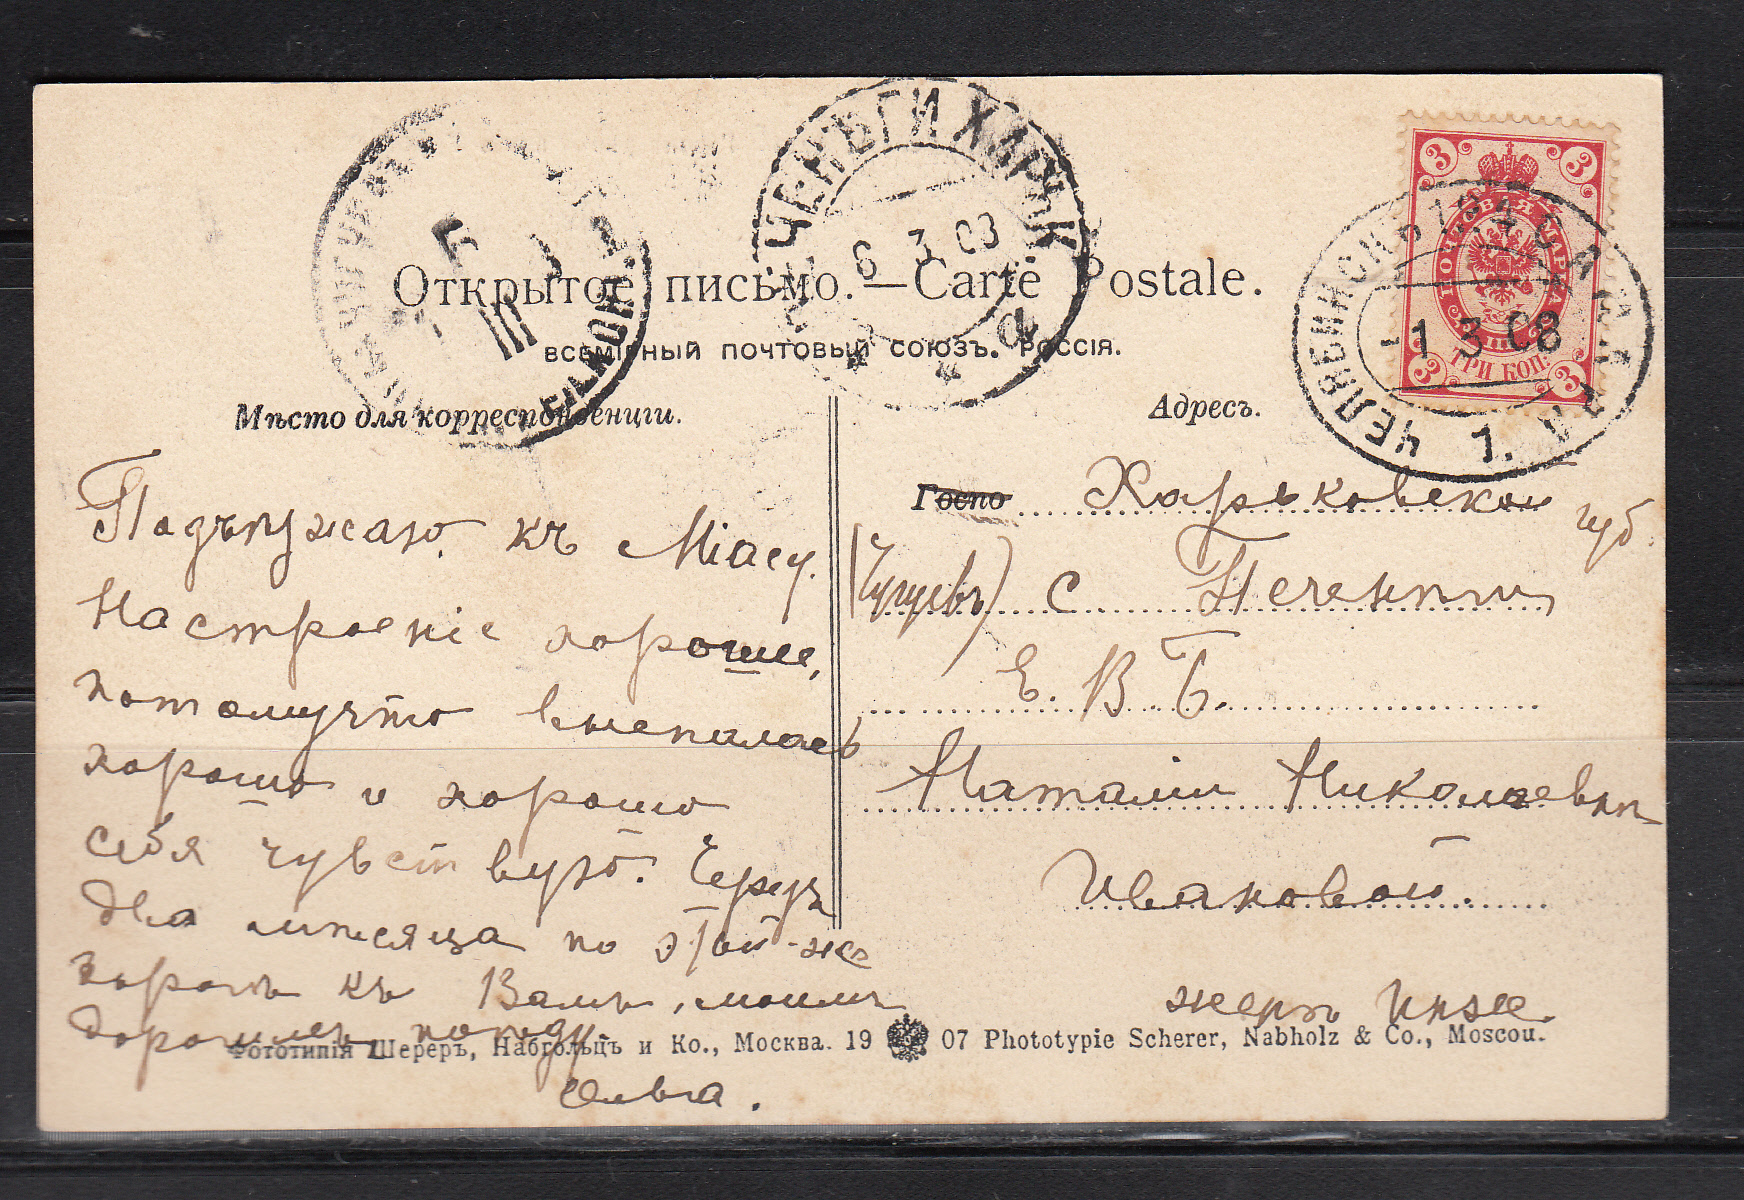 Открытое письмо. — Carte Postale.
ВСЕМІРНЫЙ ПОЧТОВЫЙ СОЮЗЪ. РОССІЯ.
Мѣсто для корреспонденціи.
Адресъ.
ПЕЧЕНѢГИ ХАРЬК.
6 3 08
ЧЕЛЯБИНСКЪ
-1 3 08
1.
3 3
ПОЧТОВАЯ МАРКА
ТРИ КОП.
3 3
Подъѣзжаю къ Міасу.
Настроеніе хорошее,
потомучто выспалась
хорошо и хорошо
себя чувствую. Черезъ
два мѣсяца по этой-же
дорогѣ къ Вамъ, моимъ
дорогимъ поѣду.
Ольга.
Госпо Харьковской губ.
(Чугуевъ) с Печенѣги
Е. В. Б.
Наталіи Николаевнѣ
Ивановой.
Фототипія Шереръ, Набгольцъ и Ко., Москва. 19 07 Phototypie Scherer, Nabholz & Co., Moscou.